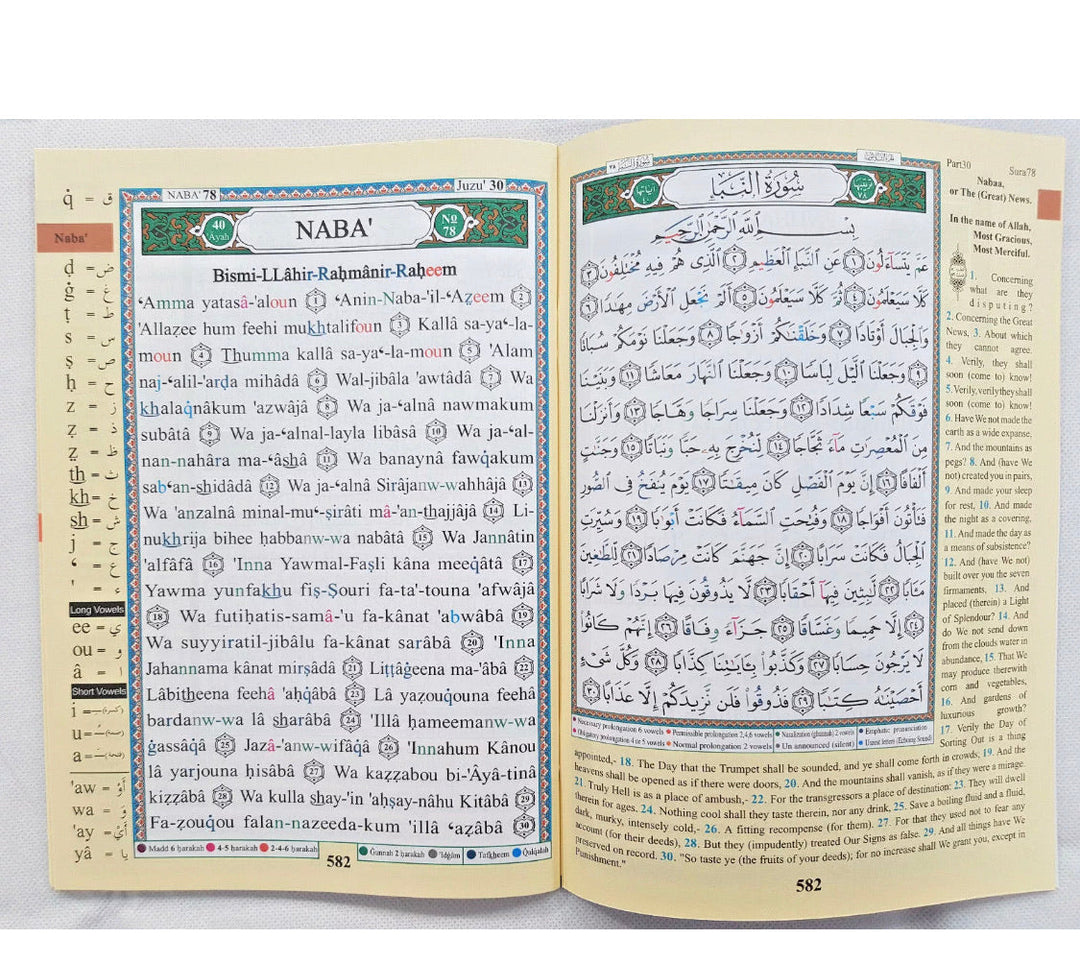 NABA' 78
Juzu' 30
40
Âyah
NABA'
№
78
Bismi-LLâhir-Raḥmânir-Raḥeem
‘Amma yatasâ-'aloun 1 ‘Anin-Naba-'il-‘Aẓeem 2
'Allaẓee hum feehi mukhtalifoun 3 Kallâ sa-ya‘-la-
moun 4 Thumma kallâ sa-ya‘-la-moun 5 'Alam
naj-‘alil-'arḍa mihâdâ 6 Wal-jibâla 'awtâdâ 7 Wa
khalaq̇nâkum 'azwâjâ 8 Wa ja-‘alnâ nawmakum
subâtâ 9 Wa ja-‘alnal-layla libâsâ 10 Wa ja-‘al-
nan-nahâra ma-‘âshâ 11 Wa banaynâ fawq̇akum
sab‘an-shidâdâ 12 Wa ja-‘alnâ Sirâjanw-wahhâjâ 13
Wa 'anzalnâ minal-mu‘-ṣirâti mâ-'an-thajjâjâ 14 Li-
nukhrija bihee ḥabbanw-wa nabâtâ 15 Wa Jannâtin
'alfâfâ 16 'Inna Yawmal-Faṣli kâna meeq̇âtâ 17
Yawma yunfakhu fiṣ-Ṣouri fa-ta'-touna 'afwâjâ
18 Wa futiḥatis-samâ-'u fa-kânat 'abwâbâ 19
Wa suyyiratil-jibâlu fa-kânat sarâbâ 20 'Inna
Jahannama kânat mirṣâdâ 21 Liṭṭâġeena ma-'âbâ 22
Lâbitheena feehâ 'aḥq̇âbâ 23 Lâ yaẓouq̇ouna feehâ
bardanw-wa lâ sharâbâ 24 'Illâ ḥameemanw-wa
ġassâq̇â 25 Jazâ-'anw-wifâq̇â 26 'Innahum Kânou
lâ yarjouna ḥisâbâ 27 Wa kaẓẓabou bi-'Âyâ-tinâ
kiẓẓâbâ 28 Wa kulla shay-'in 'aḥṣay-nâhu Kitâbâ 29
Fa-ẓouq̇ou falan-nazeeda-kum 'illâ ‘aẓâbâ 30
Madd 6 ḥarakah 4-5 ḥarakah 2-4-6 ḥarakah
Ġunnah 2 ḥarakah 'Idġâm Tafkheem Qulqalah
582
q̇ = ق
Naba'
ḍ = ض
ġ = غ
ṭ = ط
s = س
ṣ = ص
ḥ = ح
z = ز
ẓ = ذ
ẓ̤ = ظ
th = ث
kh = خ
sh = ش
j = ج
‘ = ع
' = ء
Long Vowels
ee = ي
ou = و
â = ا
Short Vowels
i = (كسرة)
u = (ضمة)
a = (فتحة)
'aw = أَوْ
wa = وَ
'ay = أَيْ
yâ = يا
سُورَةُ النَّبَإِ
بِسْمِ اللَّهِ الرَّحْمَٰنِ الرَّحِيمِ
عَمَّ يَتَسَآءَلُونَ ١ عَنِ النَّبَإِ الْعَظِيمِ ٢ الَّذِى هُمْ فِيهِ مُخْتَلِفُونَ ٣
كَلَّا سَيَعْلَمُونَ ٤ ثُمَّ كَلَّا سَيَعْلَمُونَ ٥ أَلَمْ نَجْعَلِ الْأَرْضَ مِهَٰدًا ٦
وَالْجِبَالَ أَوْتَادًا ٧ وَخَلَقْنَٰكُمْ أَزْوَٰجًا ٨ وَجَعَلْنَا نَوْمَكُمْ سُبَاتًا
٩ وَجَعَلْنَا الَّيْلَ لِبَاسًا ١٠ وَجَعَلْنَا النَّهَارَ مَعَاشًا ١١ وَبَنَيْنَا
فَوْقَكُمْ سَبْعًا شِدَادًا ١٢ وَجَعَلْنَا سِرَاجًا وَهَّاجًا ١٣ وَأَنزَلْنَا
مِنَ الْمُعْصِرَٰتِ مَآءً ثَجَّاجًا ١٤ لِّنُخْرِجَ بِهِۦ حَبًّا وَنَبَاتًا ١٥ وَجَنَّٰتٍ
أَلْفَافًا ١٦ إِنَّ يَوْمَ الْفَصْلِ كَانَ مِيقَٰتًا ١٧ يَوْمَ يُنفَخُ فِى الصُّورِ
فَتَأْتُونَ أَفْوَاجًا ١٨ وَفُتِحَتِ السَّمَآءُ فَكَانَتْ أَبْوَٰبًا ١٩ وَسُيِّرَتِ
الْجِبَالُ فَكَانَتْ سَرَابًا ٢٠ إِنَّ جَهَنَّمَ كَانَتْ مِرْصَادًا ٢١ لِّلطَّٰغِينَ
مَـَٔابًا ٢٢ لَّٰبِثِينَ فِيهَآ أَحْقَابًا ٢٣ لَّا يَذُوقُونَ فِيهَا بَرْدًا وَلَا شَرَابًا
٢٤ إِلَّا حَمِيمًا وَغَسَّاقًا ٢٥ جَزَآءً وِفَاقًا ٢٦ إِنَّهُمْ كَانُوا۟
لَا يَرْجُونَ حِسَابًا ٢٧ وَكَذَّبُوا۟ بِـَٔايَٰتِنَا كِذَّابًا ٢٨ وَكُلَّ شَىْءٍ
أَحْصَيْنَٰهُ كِتَٰبًا ٢٩ فَذُوقُوا۟ فَلَن نَّزِيدَكُمْ إِلَّا عَذَابًا ٣٠
Necessary prolongation 6 vowels Permissible prolongation 2,4,6 vowels Nazalization (ghunnah) 2 vowels Emphatic pronunciation
Obligatory prolongation 4 or 5 vowels Normal prolongation 2 vowels Un announced (silent) Unrest letters (Echoing Sound)
Part30
Sura78
Nabaa,
or The (Great) News.
In the name of Allah,
Most Gracious,
Most Merciful.
1. Concerning
what are they
disputing?
2. Concerning the Great
News, 3. About which
they cannot agree.
4. Verily, they shall
soon (come to) know!
5. Verily, verily they shall
soon (come to) know!
6. Have We not made the
earth as a wide expanse,
7. And the mountains as
pegs? 8. And (have We
not) created you in pairs,
9. And made your sleep
for rest, 10. And made
the night as a covering,
11. And made the day as
a means of subsistence?
12. And (have We not)
built over you the seven
firmaments, 13. And
placed (therein) a Light
of Splendour? 14. And
do We not send down
from the clouds water in
abundance, 15. That We
may produce therewith
corn and vegetables,
16. And gardens of
luxurious growth?
17. Verily the Day of
Sorting Out is a thing
appointed,- 18. The Day that the Trumpet shall be sounded, and ye shall come forth in crowds, 19. And the
heavens shall be opened as if there were doors, 20. And the mountains shall vanish, as if they were a mirage.
21. Truly Hell is as a place of ambush,- 22. For the transgressors a place of destination: 23. They will dwell
therein for ages. 24. Nothing cool shall they taste therein, nor any drink, 25. Save a boiling fluid and a fluid,
dark, murky, intensely cold,- 26. A fitting recompense (for them). 27. For that they used not to fear any
account (for their deeds), 28. But they (impudently) treated Our Signs as false. 29. And all things have We
preserved on record. 30. "So taste ye (the fruits of your deeds); for no increase shall We grant you, except in
Punishment."
582